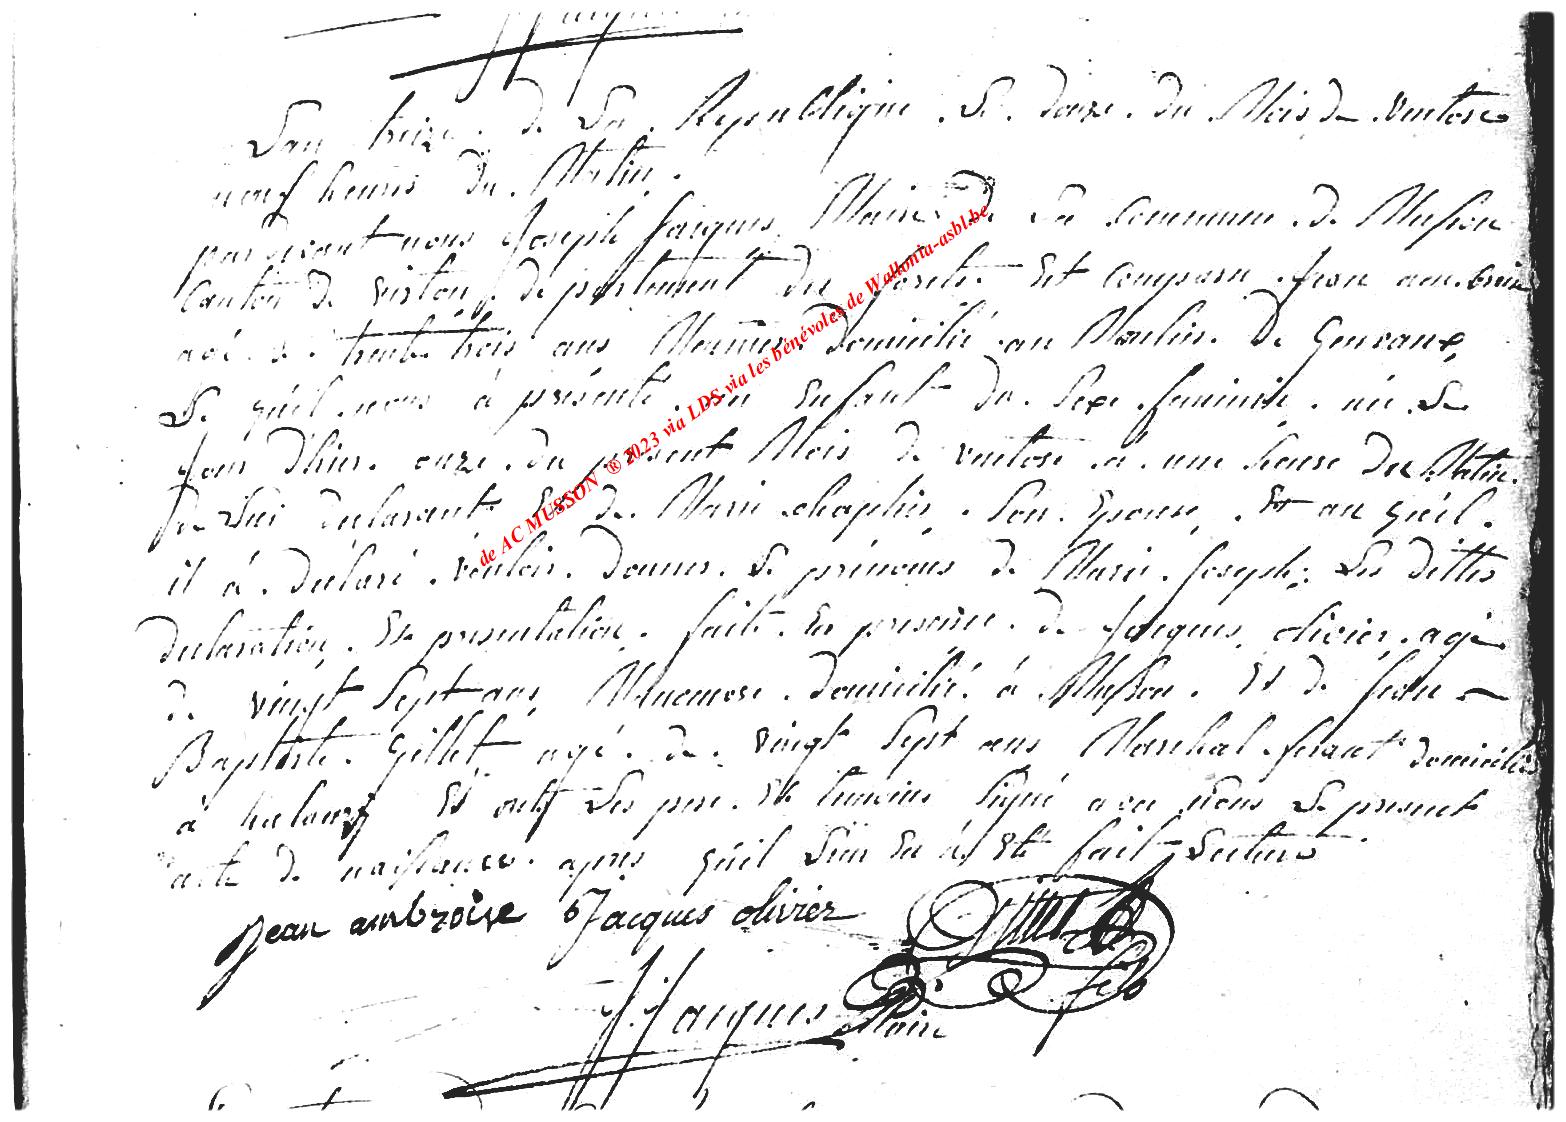 Lan treize de La Republique Le douze du Mois de ventose
neuf heures du Matin.
pardevant nous Joseph Jacques Maire de La commune de Musson
Canton de virton, departement des forêts Est comparu Jean ambroise
agé de trente trois ans Meunier domicilié au Moulin de Gennevaux,
Le quel nous à présenté un Enfant du sexe feminin né Le
Jour d'hier onze du present Mois de ventose à une heure du Matin.
de Lui declarant Et de Marie chaplier Son Epouse, Et au quel
il à déclaré vouloir donner Le prénoms de Marie Joseph; Les dittes
declaration, Et presentation faite En présence de Jacques olivier, agé
de vingt Sept ans, domicilié à Musson. Et de Jean
Baptiste Gillet agé de vingt Sept ans Marechal ferant domicilié
à halanzy Et ont Les pere Et temoins Signé avec nous Le present
acte de naissance apres quil Leur En à Eté fait Lecture
jean ambroise Jacques olivier Gillet
fils
J. Jacques Maire
de AC MUSSON ® 2023 via LDS via les bénévoles de Wallonia-asbl.be